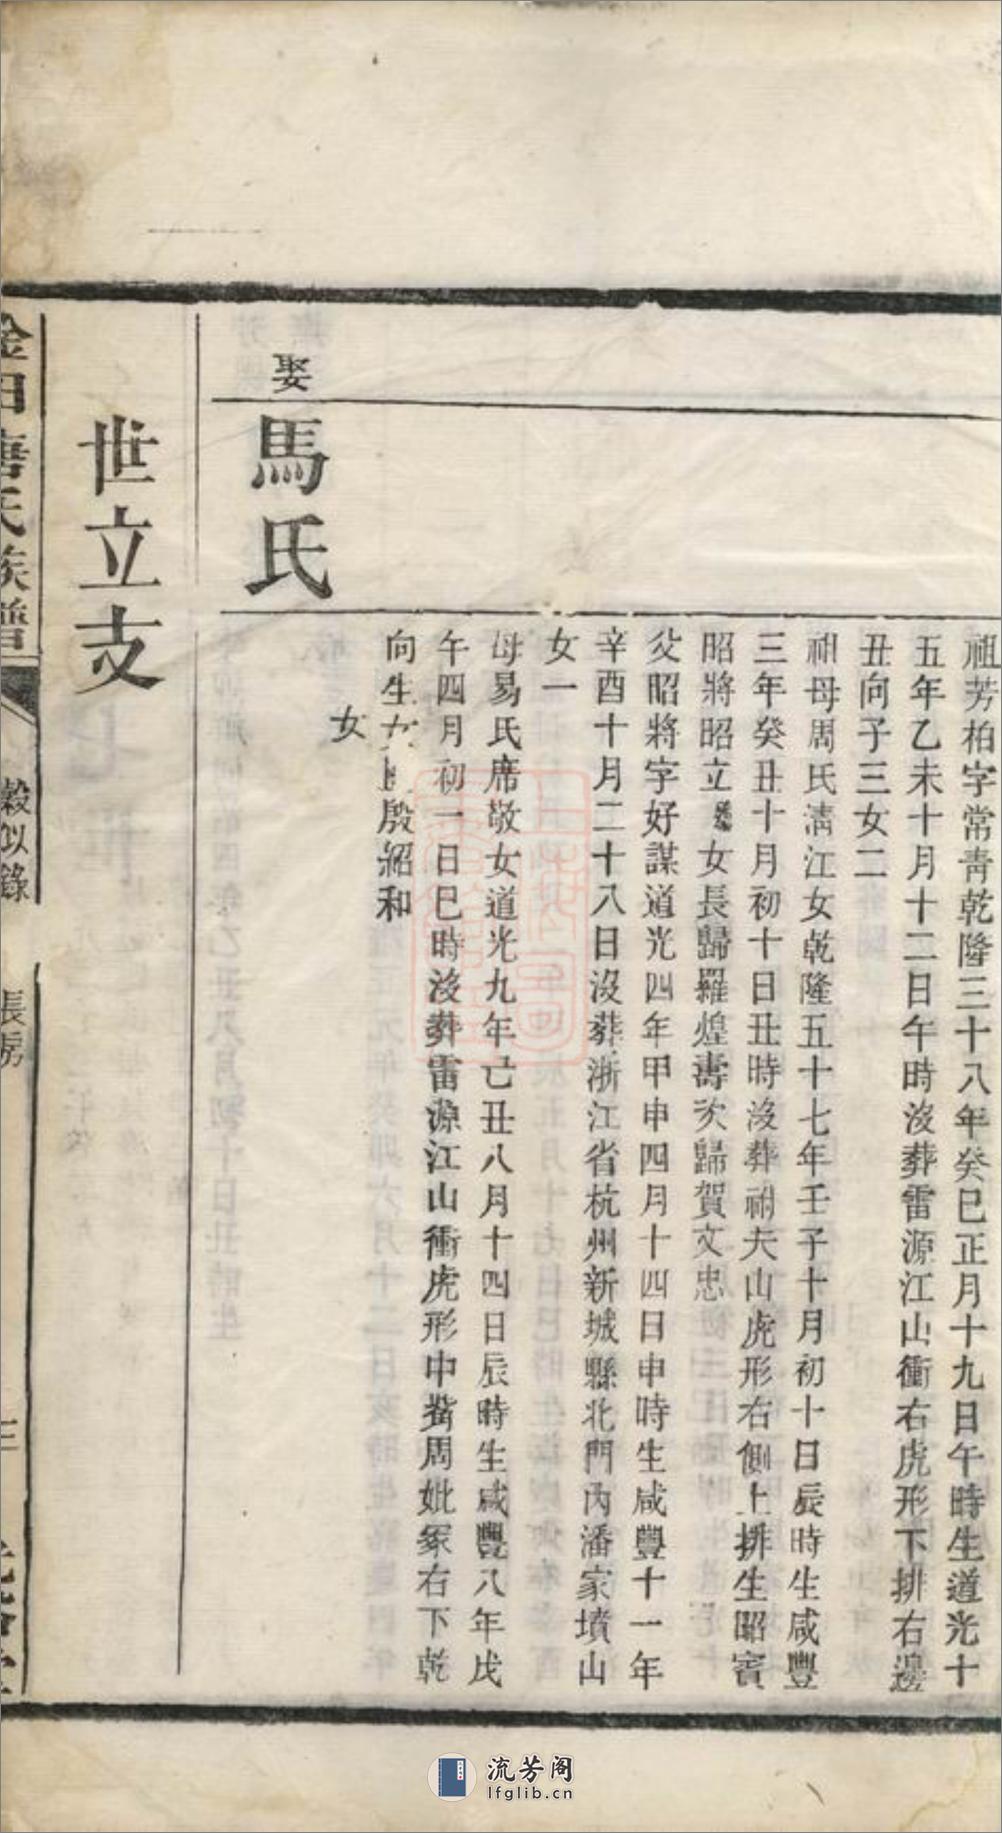 祖芳柏字常靑乾隆三十八年癸巳正月十九日午時生道光十
五年乙未十月十二日午時沒葬雷源江山衝右虎形下排右邊
丑向子三女二
祖母周氏淸江女乾隆五十七年壬子十月初十日辰時生咸豐
三年癸丑十月初十日丑時沒葬祔夫山虎形右側上排生昭賓
昭將昭立女長歸羅煌壽次歸賀文忠
父昭將字好謀道光四年甲申四月十四日申時生咸豐十一年
辛酉十月二十八日沒葬浙江省杭州新城縣北門內潘家墳山
女一
母易氏席敬女道光九年己丑八月十四日辰時生咸豐八年戊
午四月初一日巳時沒葬雷源江山衝虎形中排周妣冢右下乾
向生女殷紹和
女
娶
馬氏
世立支
金田唐氏族譜
穀似錄
長房
三
流芳阁
lfglib.cn